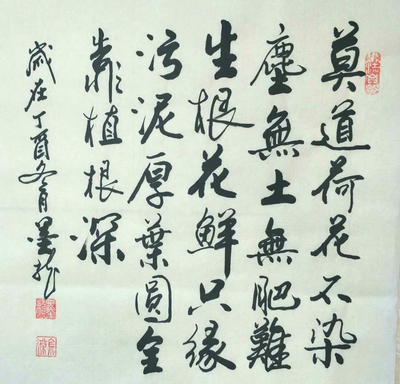 莫道荷花不染
塵無土無肥難
生根花鮮只緣
污泥厚葉圓全
靠植根深
歲在丁酉冬月墨